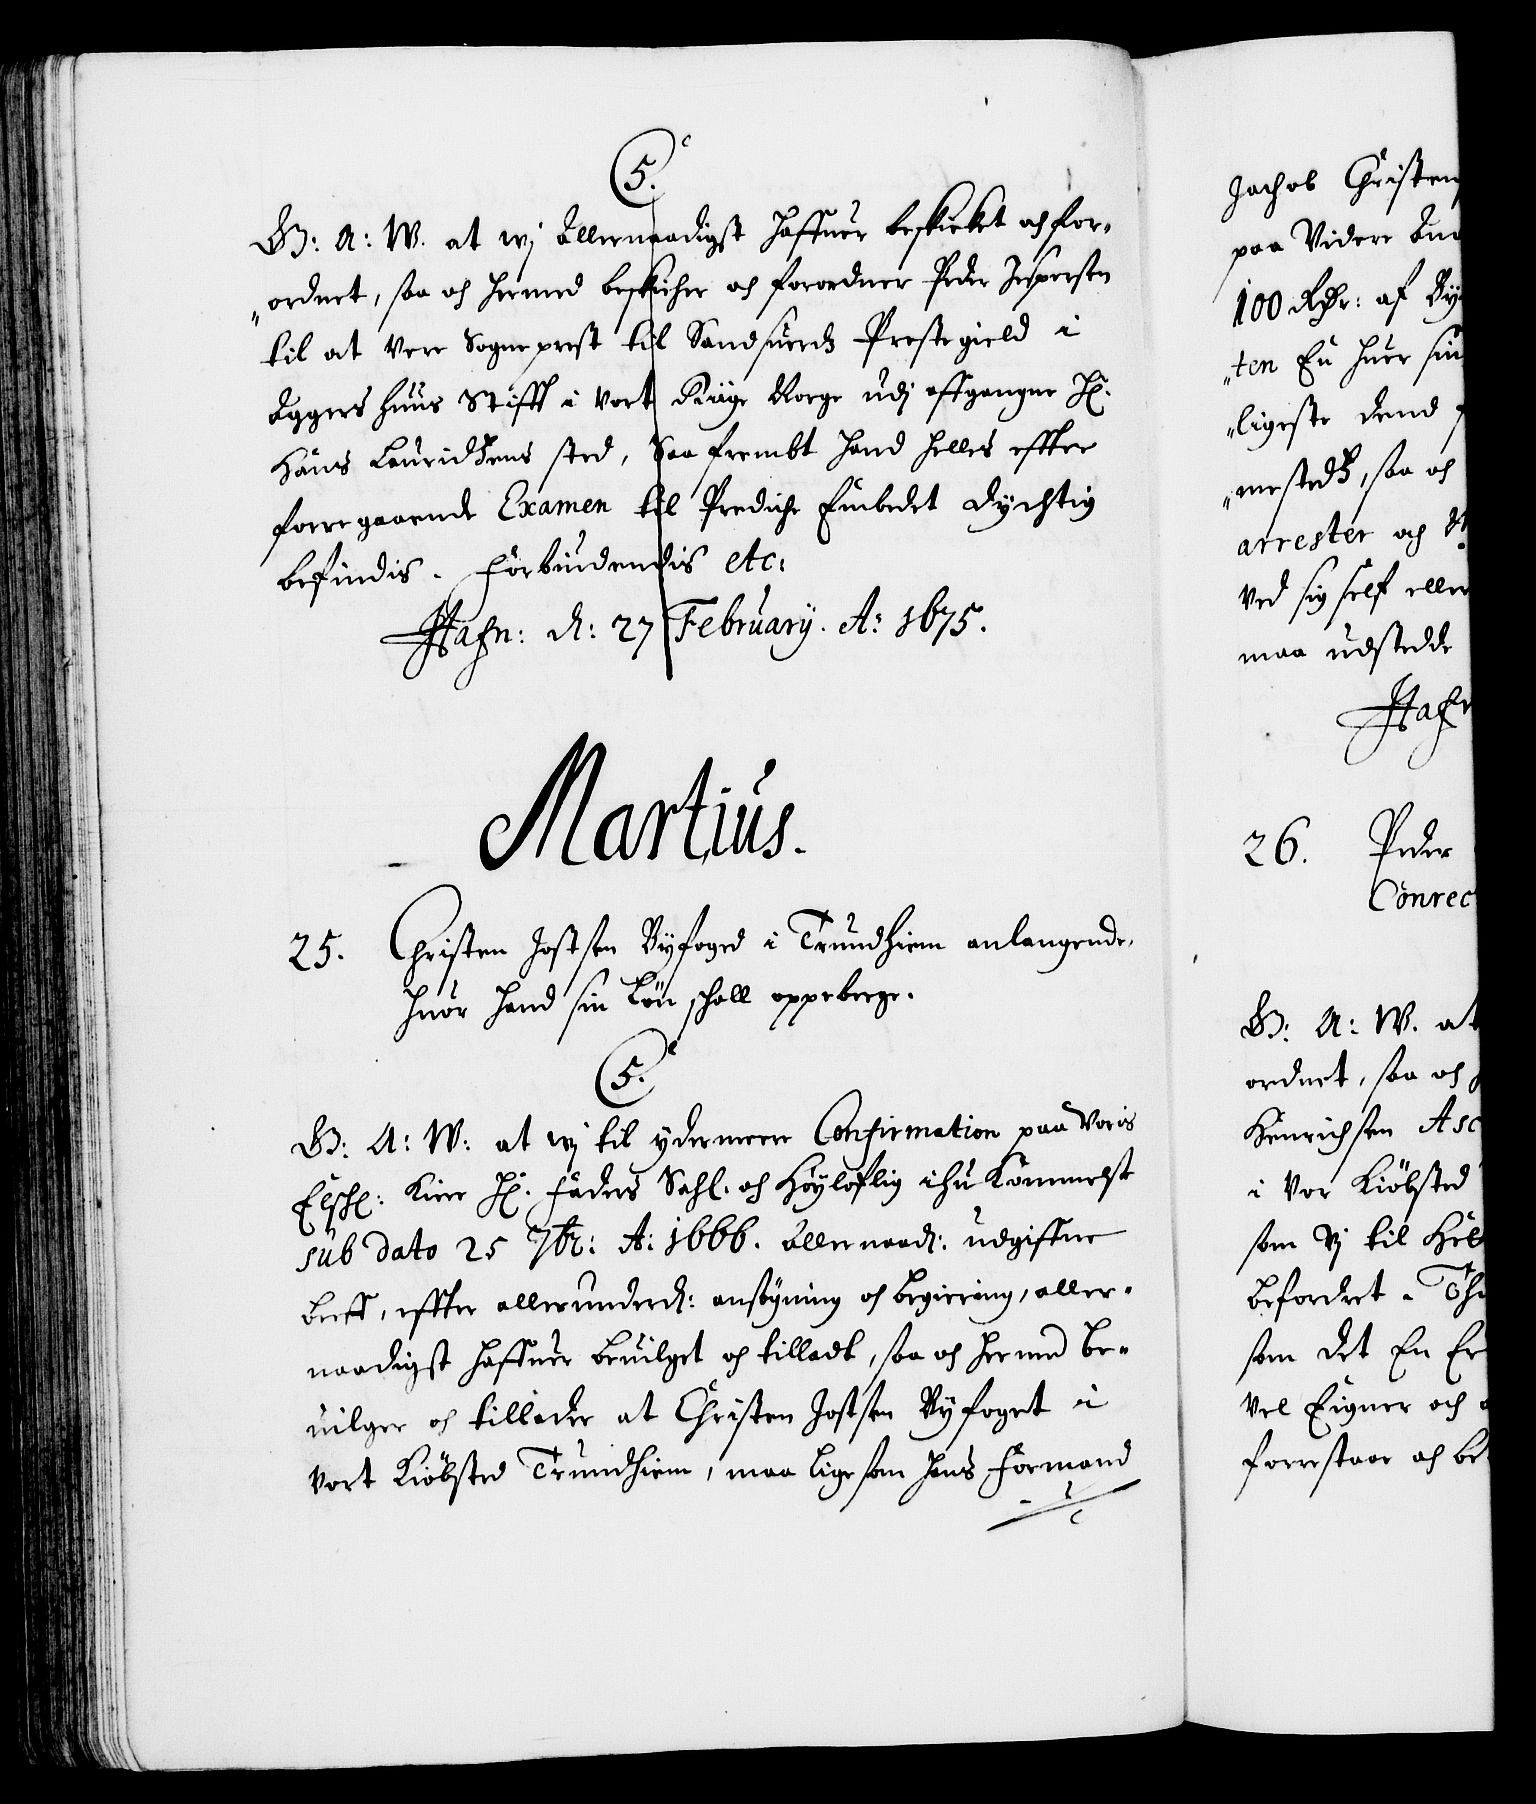 5.
G: A: W. at wj Allernaadigst haffuer beskicket och for-
„ordnet, saa och hermed beskicher och forordner Peder Jespersen
til at Vere Sogneprest til Sandsuerds Prestegield i
Aggershuus Stifft i Vort Rige Norge udj affgangne Hr.
Hans Lauridsens sted, Saafrembt hand helles effter
forregaaende Examen til Prediche Embedet dychtig
befindis. Forbindendis etc:
Hafn: d: 27 February. A: 1675.
Martius.
25. Christen Jostsen Byfoged i Trundhiem anlangende,
huor hand sin Løn schall oppeberge.
5.
G: A: W: at wj til ydermeere Confirmation paa Voris
Elschl: Kiere Hr. Faders Sahl. och Høyloflig ihukommelse
sub dato 25 7br: A: 1666. Allernaadl: udgiffne
breff, effter allerunderd: ansøgning och begiering, aller-
naadigst haffuer beuilget och tilladt, saa och hermed be-
uilger och tillader at Christen Jostsen Byfoget i
Vort Kiøbsted Trundhiem, maa ligesom hans Formand
Jachob Christen
paa Videre
100 Rdr: af By
„ten En huer sin
„ligeste dend
„mesteds, saa och
arrester och
Ved sig self eller
maa udstedde
Hafn
26. Peder
Conrec
G: A: W. at
ordnet, saa och
Henrichsen Asc
i Vor Kiøbsted
som Vj til
befordret. Thi
som det En Er
Vel Eigner och
forrestaar och be